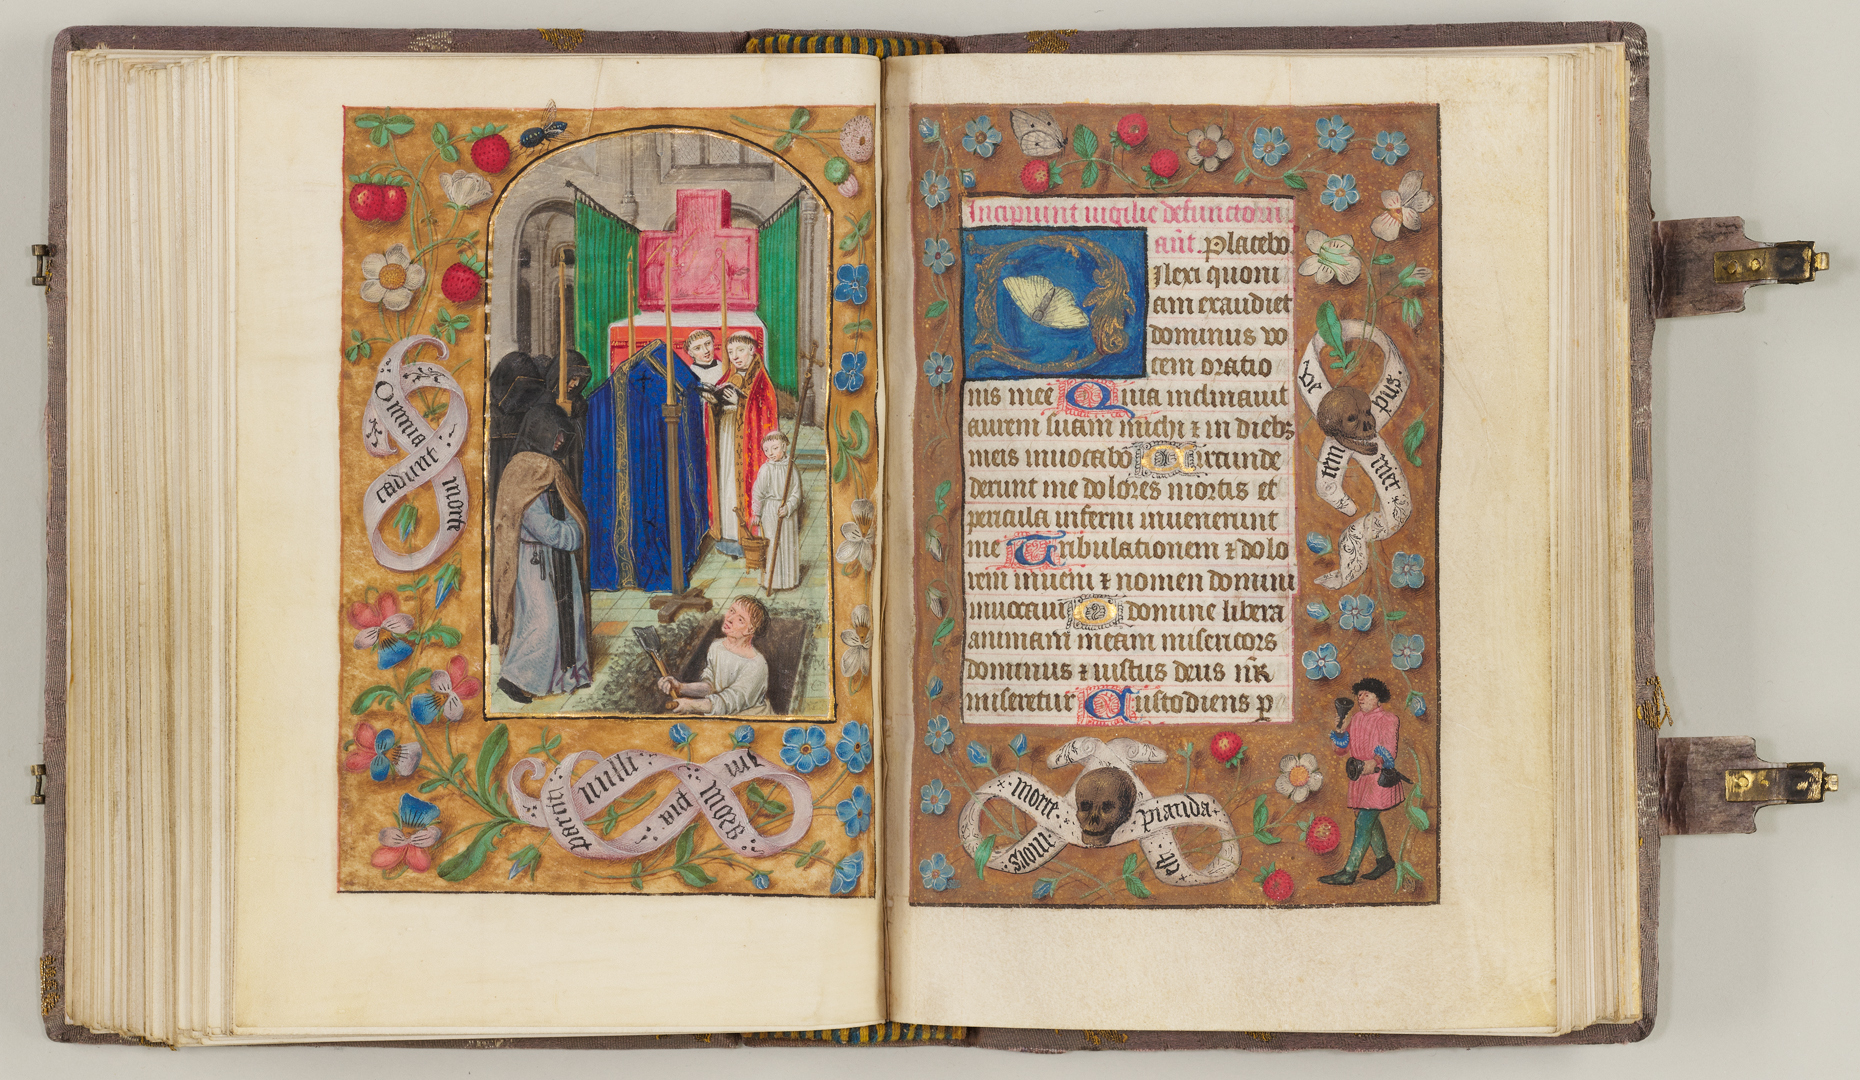 Omnia
cadunt
morte
mors
pia
nulli
parcit
Incipiunt vigilie defunctorum
añt. Placebo
Ilexi quoni
am exaudiet
dominus vo
cem oratio
nis mee Quia inclinavit
aurem suam michi ⁊ in diebꝫ
meis invocabō Circunde
derunt me dolores mortis et
pericula inferni invenerunt
me Tribulationem ⁊ dolo
rem inveni ⁊ nomen domini
invocavi O domine libera
animam meam misericors
dominus ⁊ iustus deus nr̄
miseretur Custodiens p
morte
mors
pianda